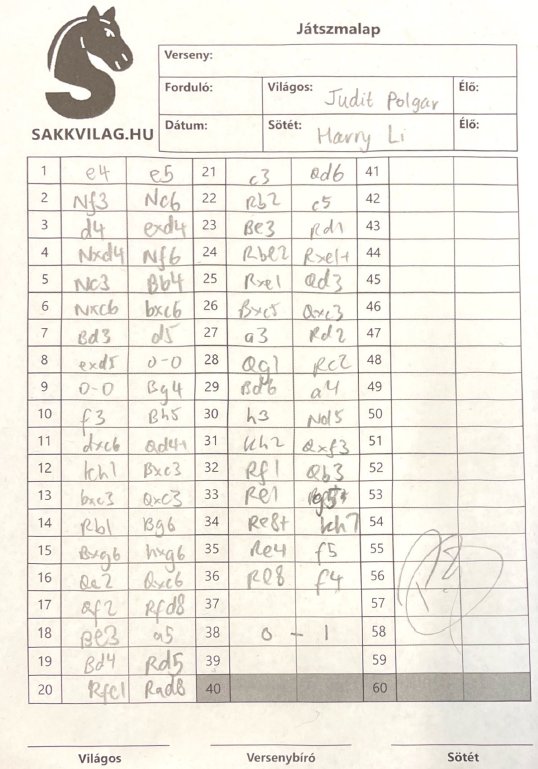 Játszmalap
SAKKVILAG.HU
Verseny:
Forduló: Világos: Judit Polgar Élő:
Dátum: Sötét: Harry Li Élő:
1 e4 e5 21 c3 Qd6 41
2 Nf3 Nc6 22 Rb2 c5 42
3 d4 exd4 23 Be3 Rd1 43
4 Nxd4 Nf6 24 Rbe2 Rxe1+ 44
5 Nc3 Bb4 25 Rxe1 Qd3 45
6 Nxc6 bxc6 26 Bxc5 Qxc3 46
7 Bd3 d5 27 a3 Rd2 47
8 exd5 0-0 28 Qg1 Rc2 48
9 0-0 Bg4 29 Bd6 a4 49
10 f3 Bh5 30 h3 Nd5 50
11 dxc6 Qd4+ 31 Kh2 Qxf3 51
12 Kh1 Bxc3 32 Rf1 Qb3 52
13 bxc3 Qxc3 33 Re1 g5+ 53
14 Rb1 Bg6 34 Re8+ Kh7 54
15 Bxg6 hxg6 35 Re4 f5 55
16 Qe2 Qxc6 36 Re8 f4 56
17 Qf2 Rfd8 37 57
18 Be3 a5 38 0-1 58
19 Bd4 Rd5 39 59
20 Rfe1 Rad8 40 60
Világos Versenybíró Sötét